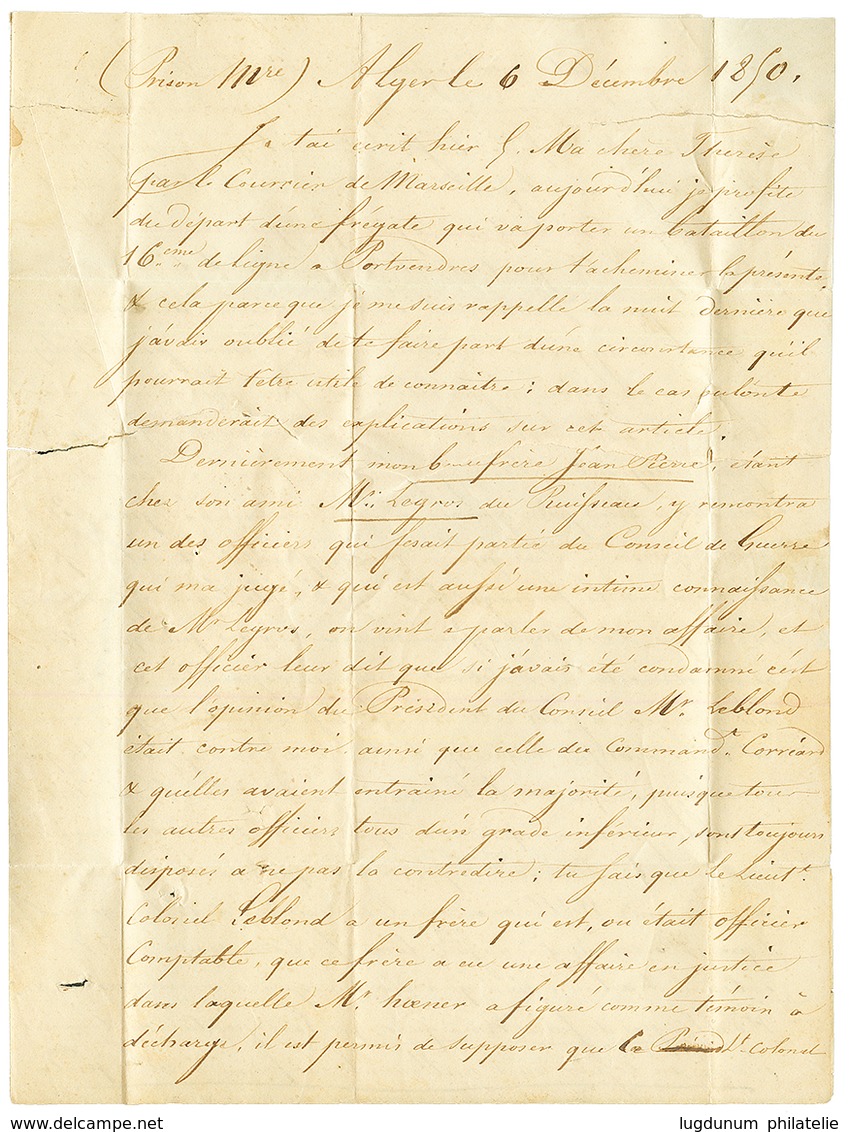 (Prison Mre) Alger le 6 Décembre 1850.
Je t'ai ecrit hier 5. Ma chere Therèse
par le Courrier de Marseille, aujourd'hui je profite
du départ d'une frégate qui va porter un bataillon du
16.eme de ligne a Portvendres pour t'acheminer la présente,
& cela parce que je me suis rappellé la nuit dernière que
j'avais oublié de te faire part d'une circonstance qu'il
pourrait t'etre utile de connaître; dans le cas où l'on te
demanderait des explications sur cet article.
Dernièrement mon beaufrère Jean Pierre, étant
chez son ami Mr. Legros du Ruisseau, y rencontra
un des officiers qui fesait partie du Conseil de Guerre
qui m'a jugé, & qui est aussi une intime connaissance
de Mr. Legros, on vint a parler de mon affaire, et
cet officier leur dit que si j'avais été condamné c'est
que l'opinion du Président du Conseil Mr. Leblond
était contre moi ainsi que celle du Commandt. Corréard
& qu'elles avaient entrainé la majorité, puisque tous
les autres officiers tous d'un grade inférieur, sont toujours
disposés a ne pas la contredire; tu sais que le Lieutt.
Colonel Leblond a un frère qui est, ou était officier
Comptable, que ce frère a eu une affaire en justice
dans laquelle Mr. hoener a figuré comme témoin à
décharge, il est permis de supposer que le Lt. Colonel
lugdunum philatelie